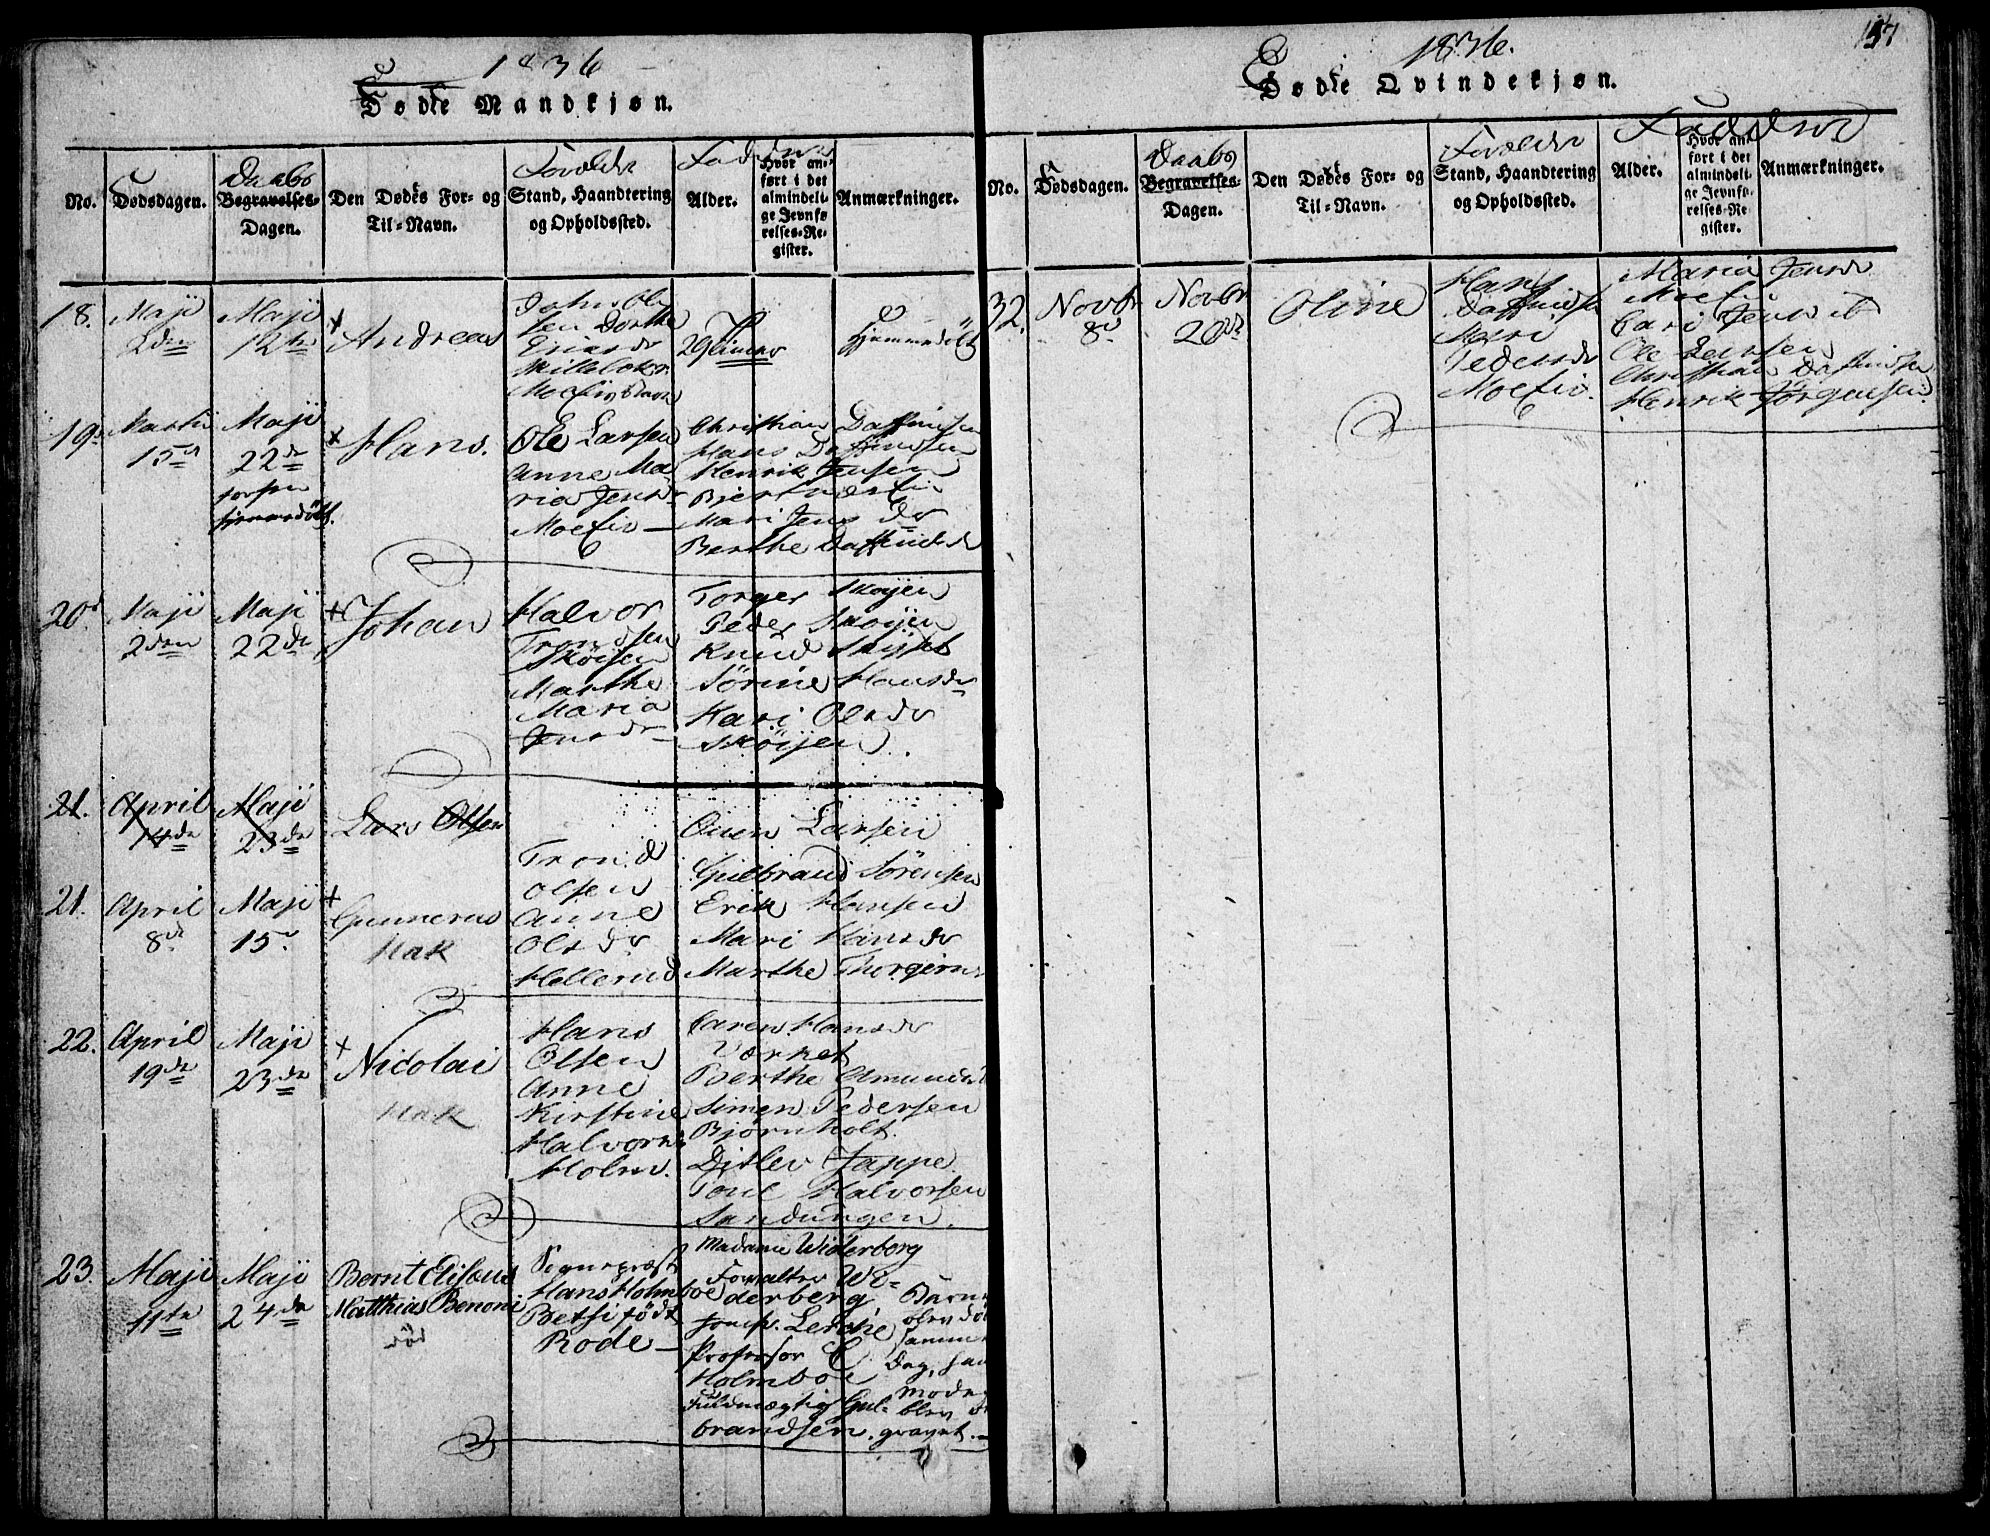 1836
Fødte Mandkjøn.
No.
Fødsdagen.
Daabs
Begravelses-
Dagen.
Den Dødes For- og
Til-Navn.
Forældre
Stand, Haandtering
og Opholdssted.
Alder.
Hvor an-
ført i det
almindeli-
ge Jevnfø
relses-Re-
gister.
Anmærkninger.
18.
Maji
2den
Maji
12te
Andreas
Dorthe
29
Hjemmedöbt
19.
Martii
15de
Maji
22de
Hans.
Ole Larsen
Anne Ma-
ria Jensdr
Moeeie
Christian Daffinsen
Hans Daffinsen
Henrik Jensen
Mari Jensdr
Berthe Daffinsdr
20.
Maji
2den
Maji
22de
Johan
Halvor
Trondsen
Skøijen
Marthe
Maria
Jensdr
Torger Skoyen
Peder Skoijen
Knud
Sörine Hansdr
Kari Olsdr
Sköijen.
21.
April
14de
Maji
23de
Lars Olsen
21.
April
8de
Maji
15.
Gunnerus
Hak
Trond
Olsen
Anne
Olsdr
Hellerud
Ouen Larsen
Gulbrand Sörensen
Erik Hansen
Mari Hansdr
Marthe
22.
April
19de
Maji
23de
Nicolai
Hak
Hans
Olsen
Anne
Kirstine
Halvors
Holm.
Caren Hansdr
Værket
Berthe Amunds
Simen Pedersen
Björnholt.
Ditlev Jappe
Halvorsen
Sandungen.
23.
Maji
11te
Maji
24de
Bernt
Matthias Benoni
Sognepræst
Hans Holmboe
Betsi född
Rode
Madame Widerborg
Forvalter Wi-
derberg
Lerche
Professor
Holmboe
Fuldmægtig Gul-
brandsen.
Barn
blev dö
samme
Dag,
Mode
blev
gravet.
1836.
157
Fødte Qvindekjøn.
No.
Fødsdagen.
Daabs
Begravelses-
Dagen.
Den Dødes For- og
Til-Navn.
Forældre
Stand, Haandtering
og Opholdssted.
Faddere
Alder.
Hvor an-
ført i det
almindeli-
ge Jevnfø-
relses-Re
gister.
Anmærkninger.
32.
Novbr
8de
Novbr
20de
Oline
Hans
Daffinsen
Kari
Pedersdr
Moeeie.
Maria Jensdr
Moeeie
Cari Jensdr
Ole Larsen
Christian Daffinsen
Henrik Jörgensen.